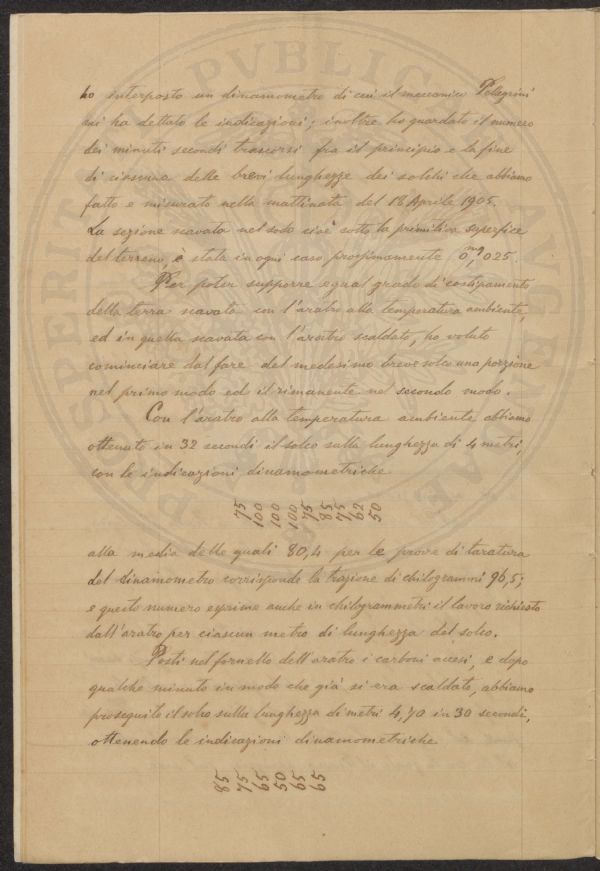 ho interposto un dinamometro di cui il meccanico Pelegrini
mi ha dettato le indicazioni; inoltre ho guardato il numero
dei minuti secondi trascorsi fra il principio e la fine
di ciascuna delle brevi lunghezze dei solchi che abbiamo
fatto e misurato nella mattinata del 18 Aprile 1905.
La sezione scavata nel sodo cioè sotto la primitiva superfice
del terreno, è stata in ogni caso prossimamente 0,mq025.
Per poter supporre egual grado di costipamento
della terra scavata con l'aratro alla temperatura ambiente,
ed in quella scavata con l'aratro scaldato, ho voluto
cominciare dal fare del medesimo breve solco una porzione
nel primo modo ed il rimanente nel secondo modo.
Con l'aratro alla temperatura ambiente abbiamo
ottenuto in 32 secondi il solco sulla lunghezza di 4 metri,
con le indicazioni dinamometriche
75
100
100
100
75
85
75
62
50
alla media delle quali 80,4 per le prove di taratura
del dinamometro corrisponde la trazione di chilogrammi 96,5;
e questo numero esprime anche in chilogrammetri il lavoro richiesto
dall'aratro per ciascun metro di lunghezza del solco.
Posti nel fornello dell'aratro i carboni accesi, e dopo
qualche minuto in modo che già si era scaldato, abbiamo
proseguito il solco sulla lunghezza di metri 4,70 in 30 secondi,
ottenendo le indicazioni dinamometriche
85
75
65
50
65
65